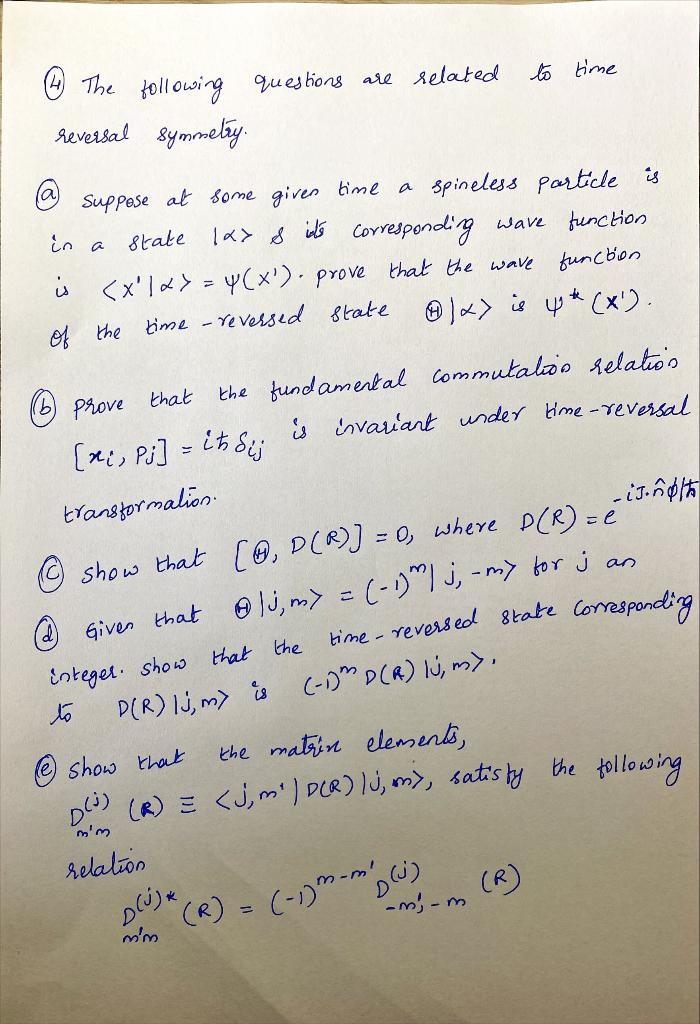 ④ The following questions are related to time
reversal symmetry.
ⓐ Suppose at some given time a spineless particle is
in a state |α> & its corresponding wave function
is <x'|α> = ψ(x'). prove that the wave function
of the time-reversed state Ⓗ|α> is ψ*(x').
ⓑ Prove that the fundamental commutation relation
[xi, Pj] = iħ δij is invariant under time-reversal
transformation.
ⓒ Show that [Ⓗ, D(R)] = 0, where D(R) = e^{-iJ·n̂ϕ/ħ}
ⓓ Given that Ⓗ|j,m> = (-1)^m |j,-m> for j an
integer. Show that the time-reversed state corresponding
to D(R)|j,m> is (-1)^m D(R)|j,m>.
ⓔ Show that the matrix elements,
D^{(j)}_{m'm}(R) ≡ <j,m'|D(R)|j,m>, satisfy the following
relation
D^{(j)*}_{m'm}(R) = (-1)^{m-m'} D^{(j)}_{-m',-m}(R)